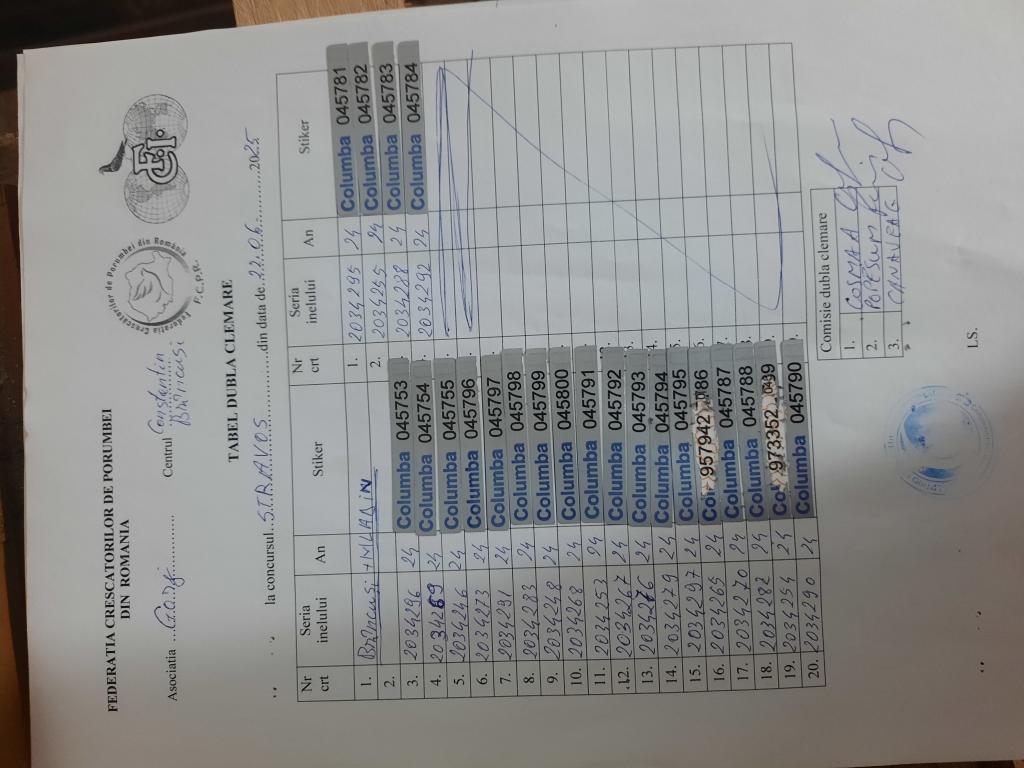 FEDERATIA CRESCATORILOR DE PORUMBEI
DIN ROMANIA
Federatia Crescătorilor de Porumbei din România
F.C.P.R.
Asociatia ...Gorj............ Centrul Constantin
Brâncuși
TABEL DUBLA CLEMARE
la concursul...STRAVOS............din data de..22.06............2025
Nr crt Seria inelului An Stiker Nr crt Seria inelului An Stiker
1. Brâncuși + MLADIN 1. 2034295 24 Columba 045781
2. 2. 2034245 24 Columba 045782
3. 2034296 24 Columba 045753 2034288 24 Columba 045783
4. 2034269 24 Columba 045754 2034292 24 Columba 045784
5. 2034246 24 Columba 045755
6. 2034273 24 Columba 045796
7. 2034291 24 Columba 045797
8. 2034283 24 Columba 045798
9. 2034248 24 Columba 045799
10. 2034268 24 Columba 045800
11. 2034253 24 Columba 045791
12. 2034267 24 Columba 045792
13. 2034276 24 Columba 045793
14. 2034279 24 Columba 045794
15. 2034297 24 Columba 045795
16. 2034265 24 957942
17. 2034270 24 Columba 045787
18. 2034282 24 Columba 045788
19. 2034254 24 973352
20. 2034290 24 Columba 045790
Comisie dubla clemare
1. COSMA A
2. POPESCU
3.
LS.